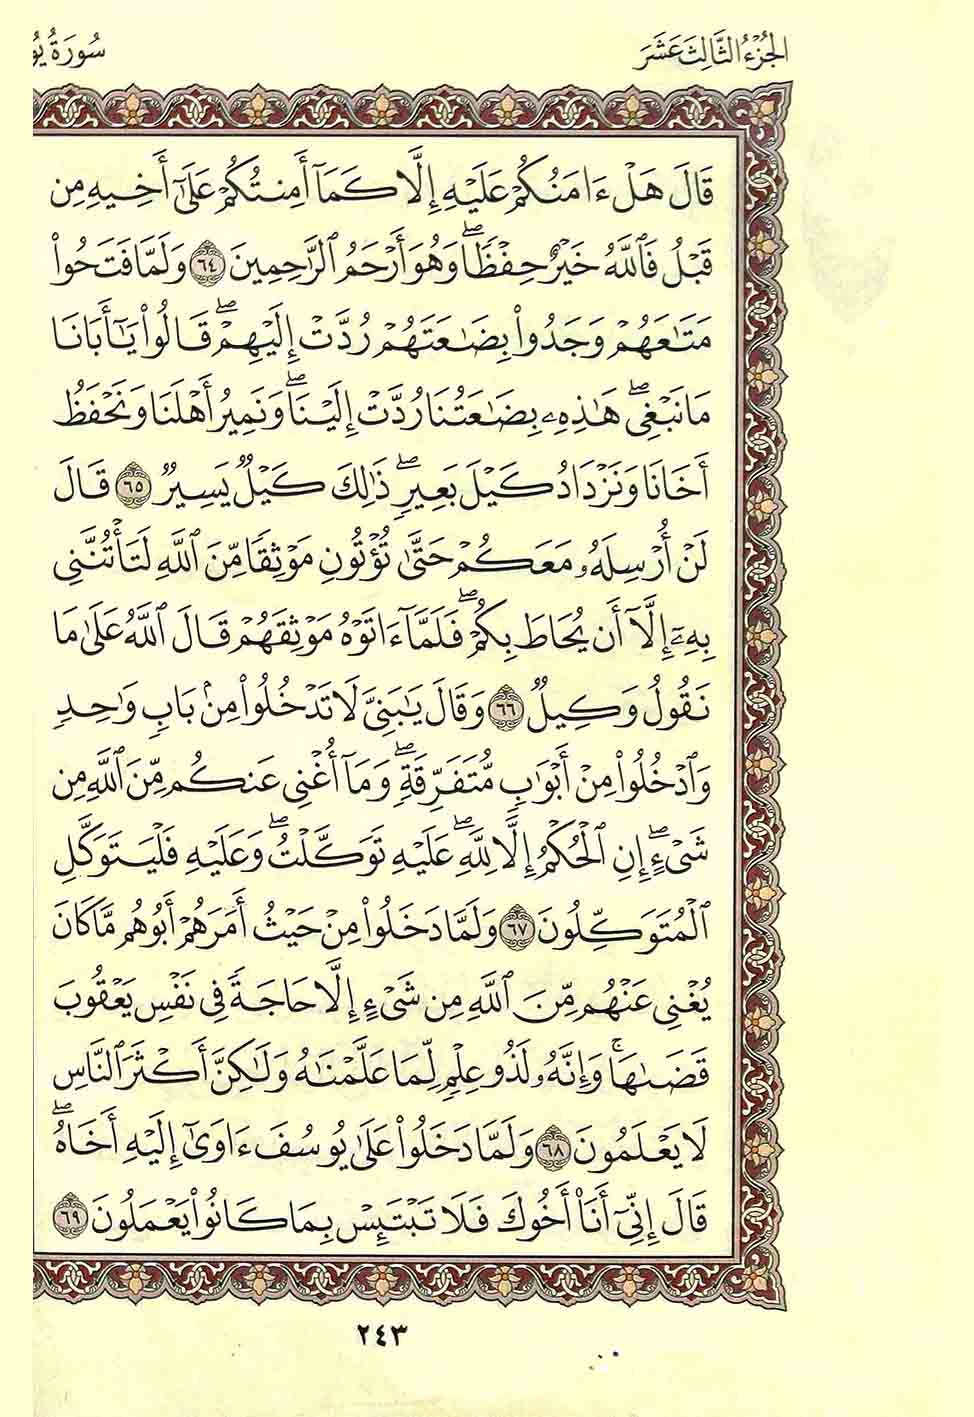 الجزء الثالث عشر
سورة يو
قَالَ هَلْ ءَامَنُكُمْ عَلَيْهِ إِلَّا كَمَآ أَمِنتُكُمْ عَلَىٰٓ أَخِيهِ مِن
قَبْلُ فَٱللَّهُ خَيْرٌ حِفْظًا ۖ وَهُوَ أَرْحَمُ ٱلرَّٰحِمِينَ ٦٤ وَلَمَّا فَتَحُوا۟
مَتَٰعَهُمْ وَجَدُوا۟ بِضَٰعَتَهُمْ رُدَّتْ إِلَيْهِمْ ۖ قَالُوا۟ يَٰٓأَبَانَا
مَا نَبْغِى ۖ هَٰذِهِۦ بِضَٰعَتُنَا رُدَّتْ إِلَيْنَا ۖ وَنَمِيرُ أَهْلَنَا وَنَحْفَظُ
أَخَانَا وَنَزْدَادُ كَيْلَ بَعِيرٍ ۖ ذَٰلِكَ كَيْلٌ يَسِيرٌ ٦٥ قَالَ
لَنْ أُرْسِلَهُۥ مَعَكُمْ حَتَّىٰ تُؤْتُونِ مَوْثِقًا مِّنَ ٱللَّهِ لَتَأْتُنَّنِى
بِهِۦٓ إِلَّآ أَن يُحَاطَ بِكُمْ ۖ فَلَمَّآ ءَاتَوْهُ مَوْثِقَهُمْ قَالَ ٱللَّهُ عَلَىٰ مَا
نَقُولُ وَكِيلٌ ٦٦ وَقَالَ يَٰبَنِىَّ لَا تَدْخُلُوا۟ مِنۢ بَابٍ وَٰحِدٍ
وَٱدْخُلُوا۟ مِنْ أَبْوَٰبٍ مُّتَفَرِّقَةٍ ۖ وَمَآ أُغْنِى عَنكُم مِّنَ ٱللَّهِ مِن
شَىْءٍ ۖ إِنِ ٱلْحُكْمُ إِلَّا لِلَّهِ ۖ عَلَيْهِ تَوَكَّلْتُ ۖ وَعَلَيْهِ فَلْيَتَوَكَّلِ
ٱلْمُتَوَكِّلُونَ ٦٧ وَلَمَّا دَخَلُوا۟ مِنْ حَيْثُ أَمَرَهُمْ أَبُوهُم مَّا كَانَ
يُغْنِى عَنْهُم مِّنَ ٱللَّهِ مِن شَىْءٍ إِلَّا حَاجَةً فِى نَفْسِ يَعْقُوبَ
قَضَىٰهَا ۚ وَإِنَّهُۥ لَذُو عِلْمٍ لِّمَا عَلَّمْنَٰهُ وَلَٰكِنَّ أَكْثَرَ ٱلنَّاسِ
لَا يَعْلَمُونَ ٦٨ وَلَمَّا دَخَلُوا۟ عَلَىٰ يُوسُفَ ءَاوَىٰٓ إِلَيْهِ أَخَاهُ ۖ
قَالَ إِنِّىٓ أَنَا۠ أَخُوكَ فَلَا تَبْتَئِسْ بِمَا كَانُوا۟ يَعْمَلُونَ ٦٩
٢٤٣